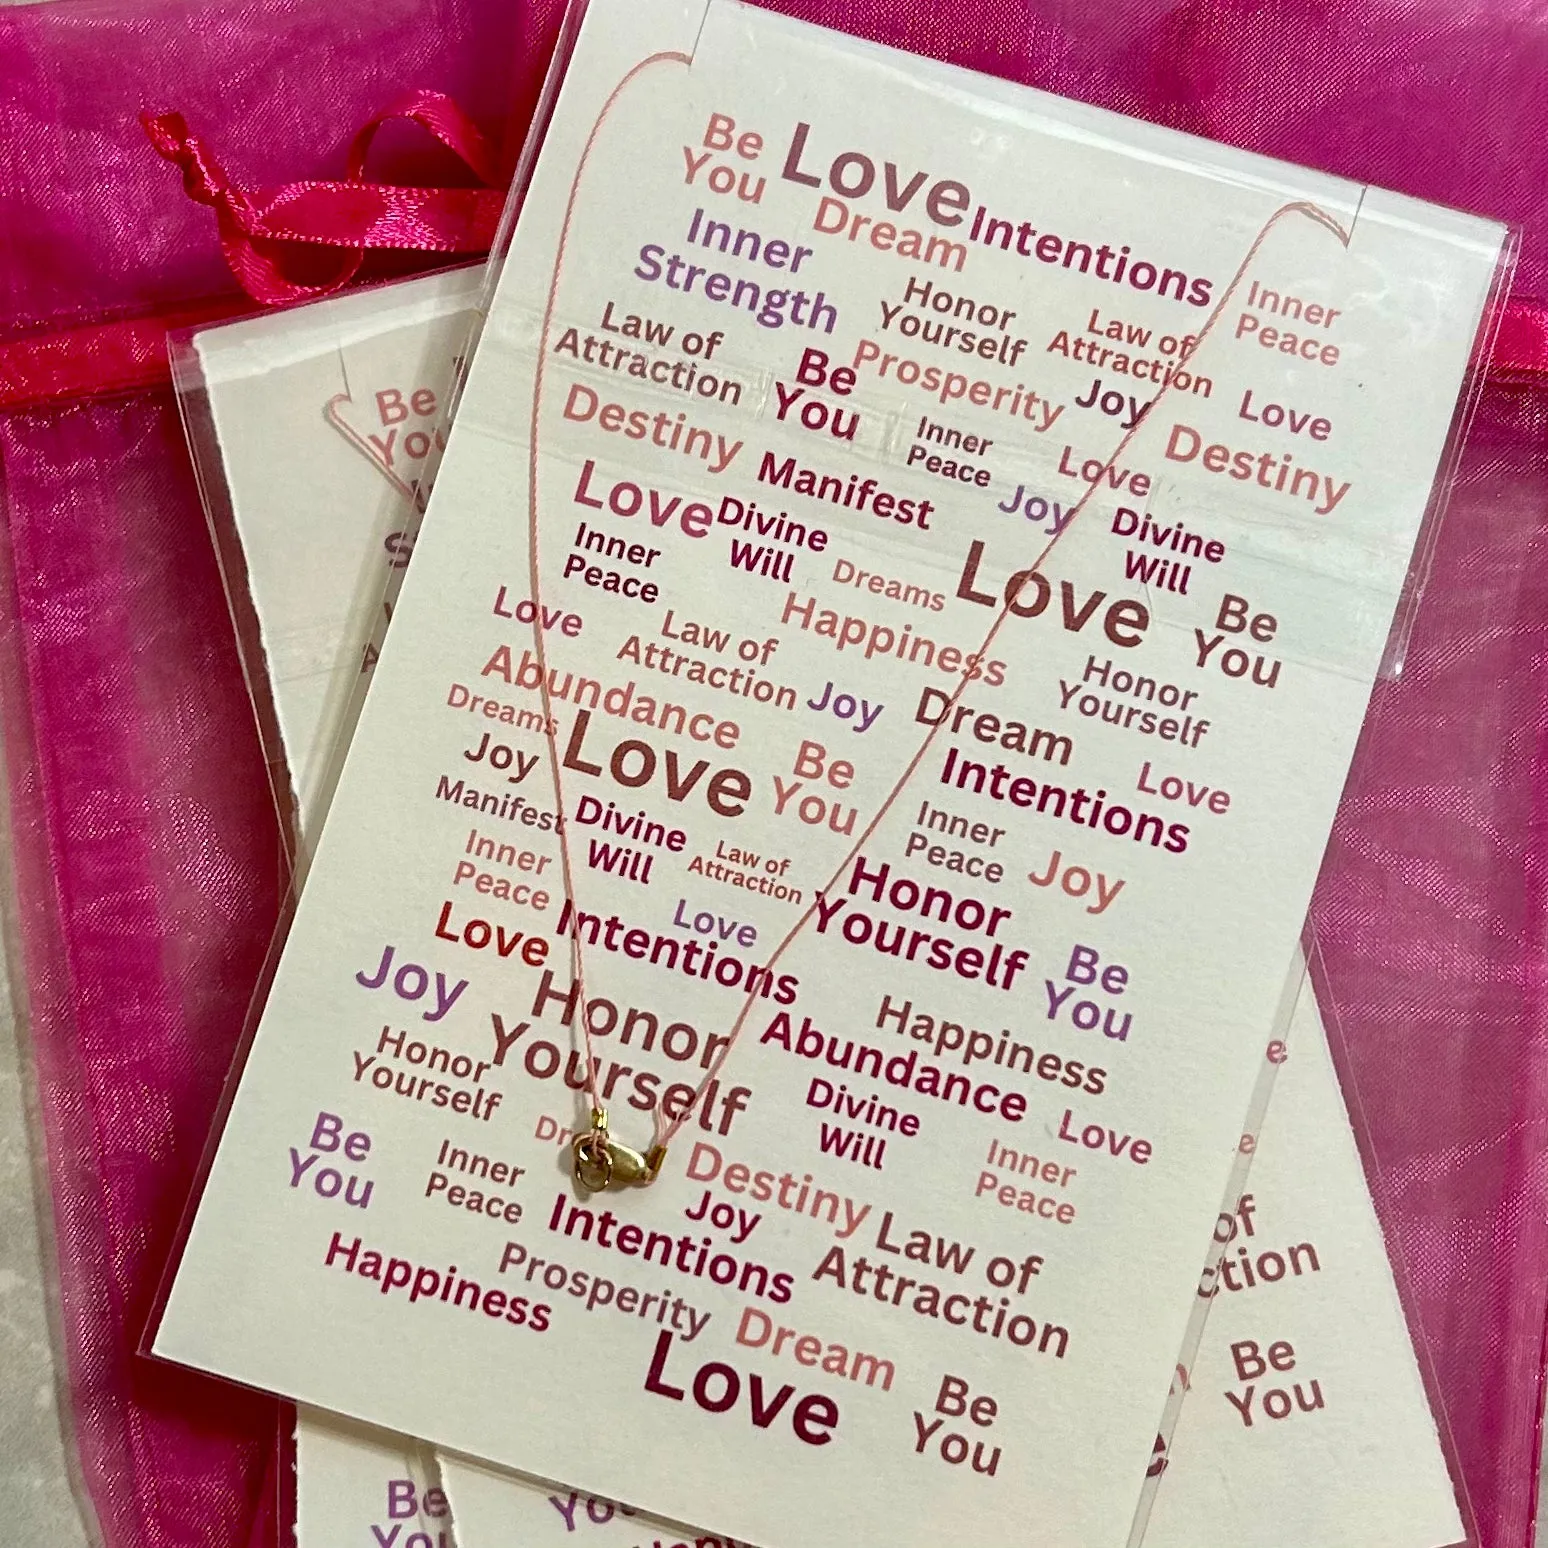 Be
You
Love
Dream
Intentions
Inner
Strength
Honor
Yourself
Law of
Attraction
Inner
Peace
Law of
Attraction
Be
You
Prosperity
Joy
Love
Destiny
Manifest
Inner
Peace
Love
Joy
Destiny
Love
Divine
Will
Dreams
Love
Divine
Will
Be
You
Inner
Peace
Love
Law of
Attraction
Happiness
Honor
Yourself
Abundance
Joy
Dream
Dreams
Love
Be
You
Intentions
Love
Joy
Manifest
Divine
Will
Law of
Attraction
Inner
Peace
Joy
Inner
Peace
Love
Honor
Yourself
Be
You
Love
Intentions
Joy
Honor
Yourself
Happiness
Abundance
Honor
Yourself
Divine
Will
Love
Inner
Peace
Be
You
Inner
Peace
Destiny
Joy
Law of
Attraction
Intentions
Happiness
Prosperity
Dream
Love
Be
You
Be
of
Be
You
Be